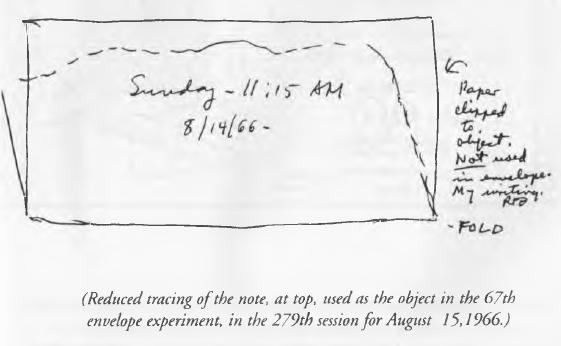 Sunday - 11:15 AM
8/14/66 -
Paper
clipped
to
object.
Not used
in envelope.
My writing.
RFB
- FOLD
(Reduced tracing of the note, at top, used as the object in the 67th
envelope experiment, in the 279th session for August 15,1966.)